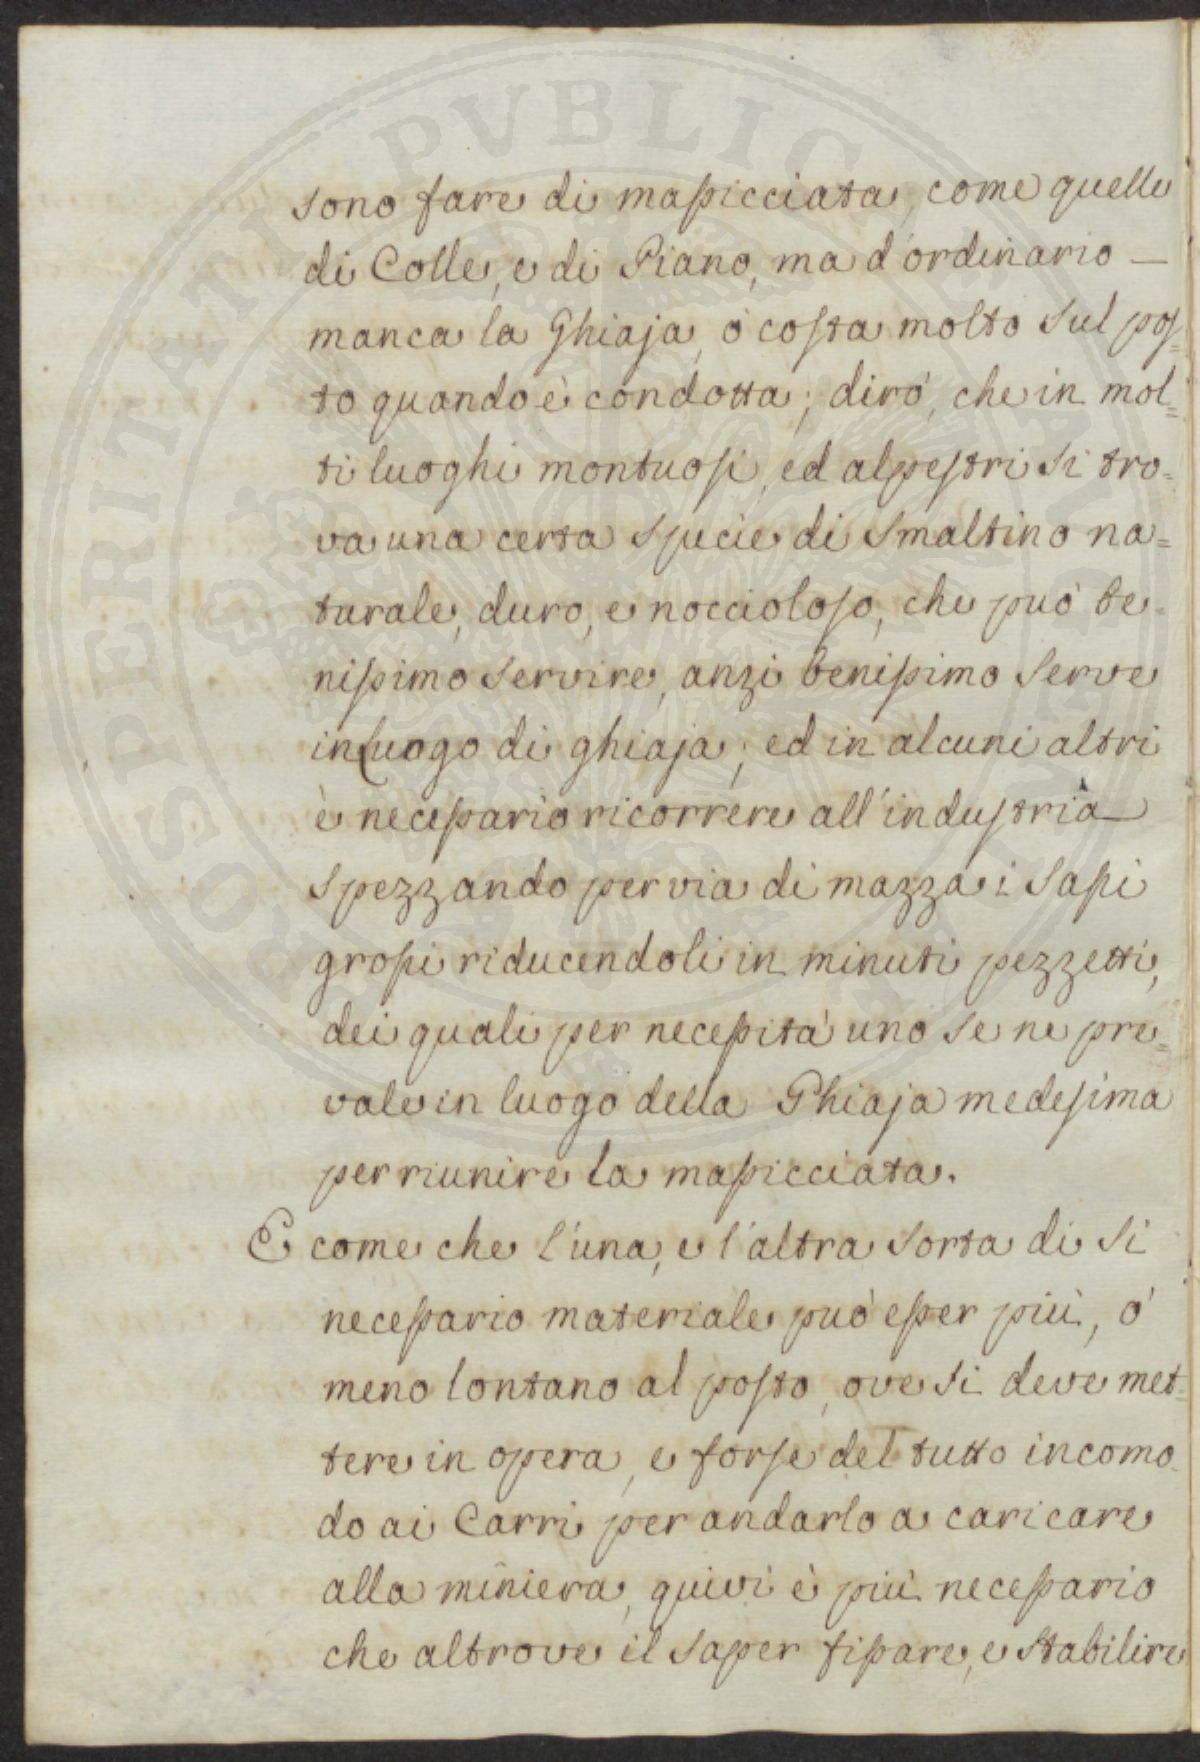 PROSPERITATI PVBLICAE AVGENDAE
sono fare di massicciata, come quelle
di Colle, e di Piano, ma d'ordinario —
manca la Ghiaja, ò costa molto sul pos=
to quando è condotta; dirò, che in mol=
ti luoghi montuosi, ed alpestri si tro=
va una certa specie di smaltino na=
turale, duro, e noccioloso, che può be=
nissimo servire, anzi benissimo serve
in luogo di ghiaja; ed in alcuni altri
è necessario ricorrere all'industria —
spezzando per via di mazza i sassi
grossi riducendoli in minuti pezzetti,
dei quali per necessità uno se ne pre=
vale in luogo della Ghiaja medesima
per riunire la massicciata.
E come che l'una, e l'altra sorta di sì
necessario materiale può esser più, ò
meno lontano al posto, ove si deve met=
tere in opera, e forse del tutto incomo=
do ai Carri per andarlo a caricare
alla miniera, quivi è più necessario
che altrove il saper fissare, e stabilire